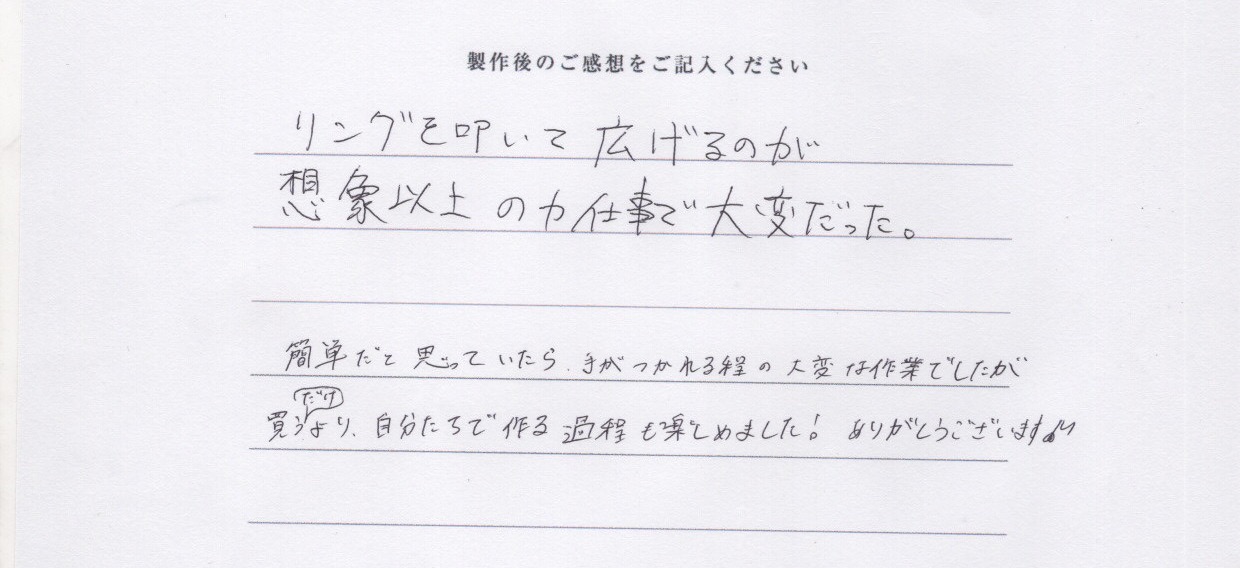 製作後のご感想をご記入ください
リングを叩いて広げるのが
想象以上の力仕事で大変だった。
簡単だと思っていたら、手がつかれる程の大変な作業でしたが
買うだけより、自分たちで作る過程も楽しめました! ありがとうございます♪